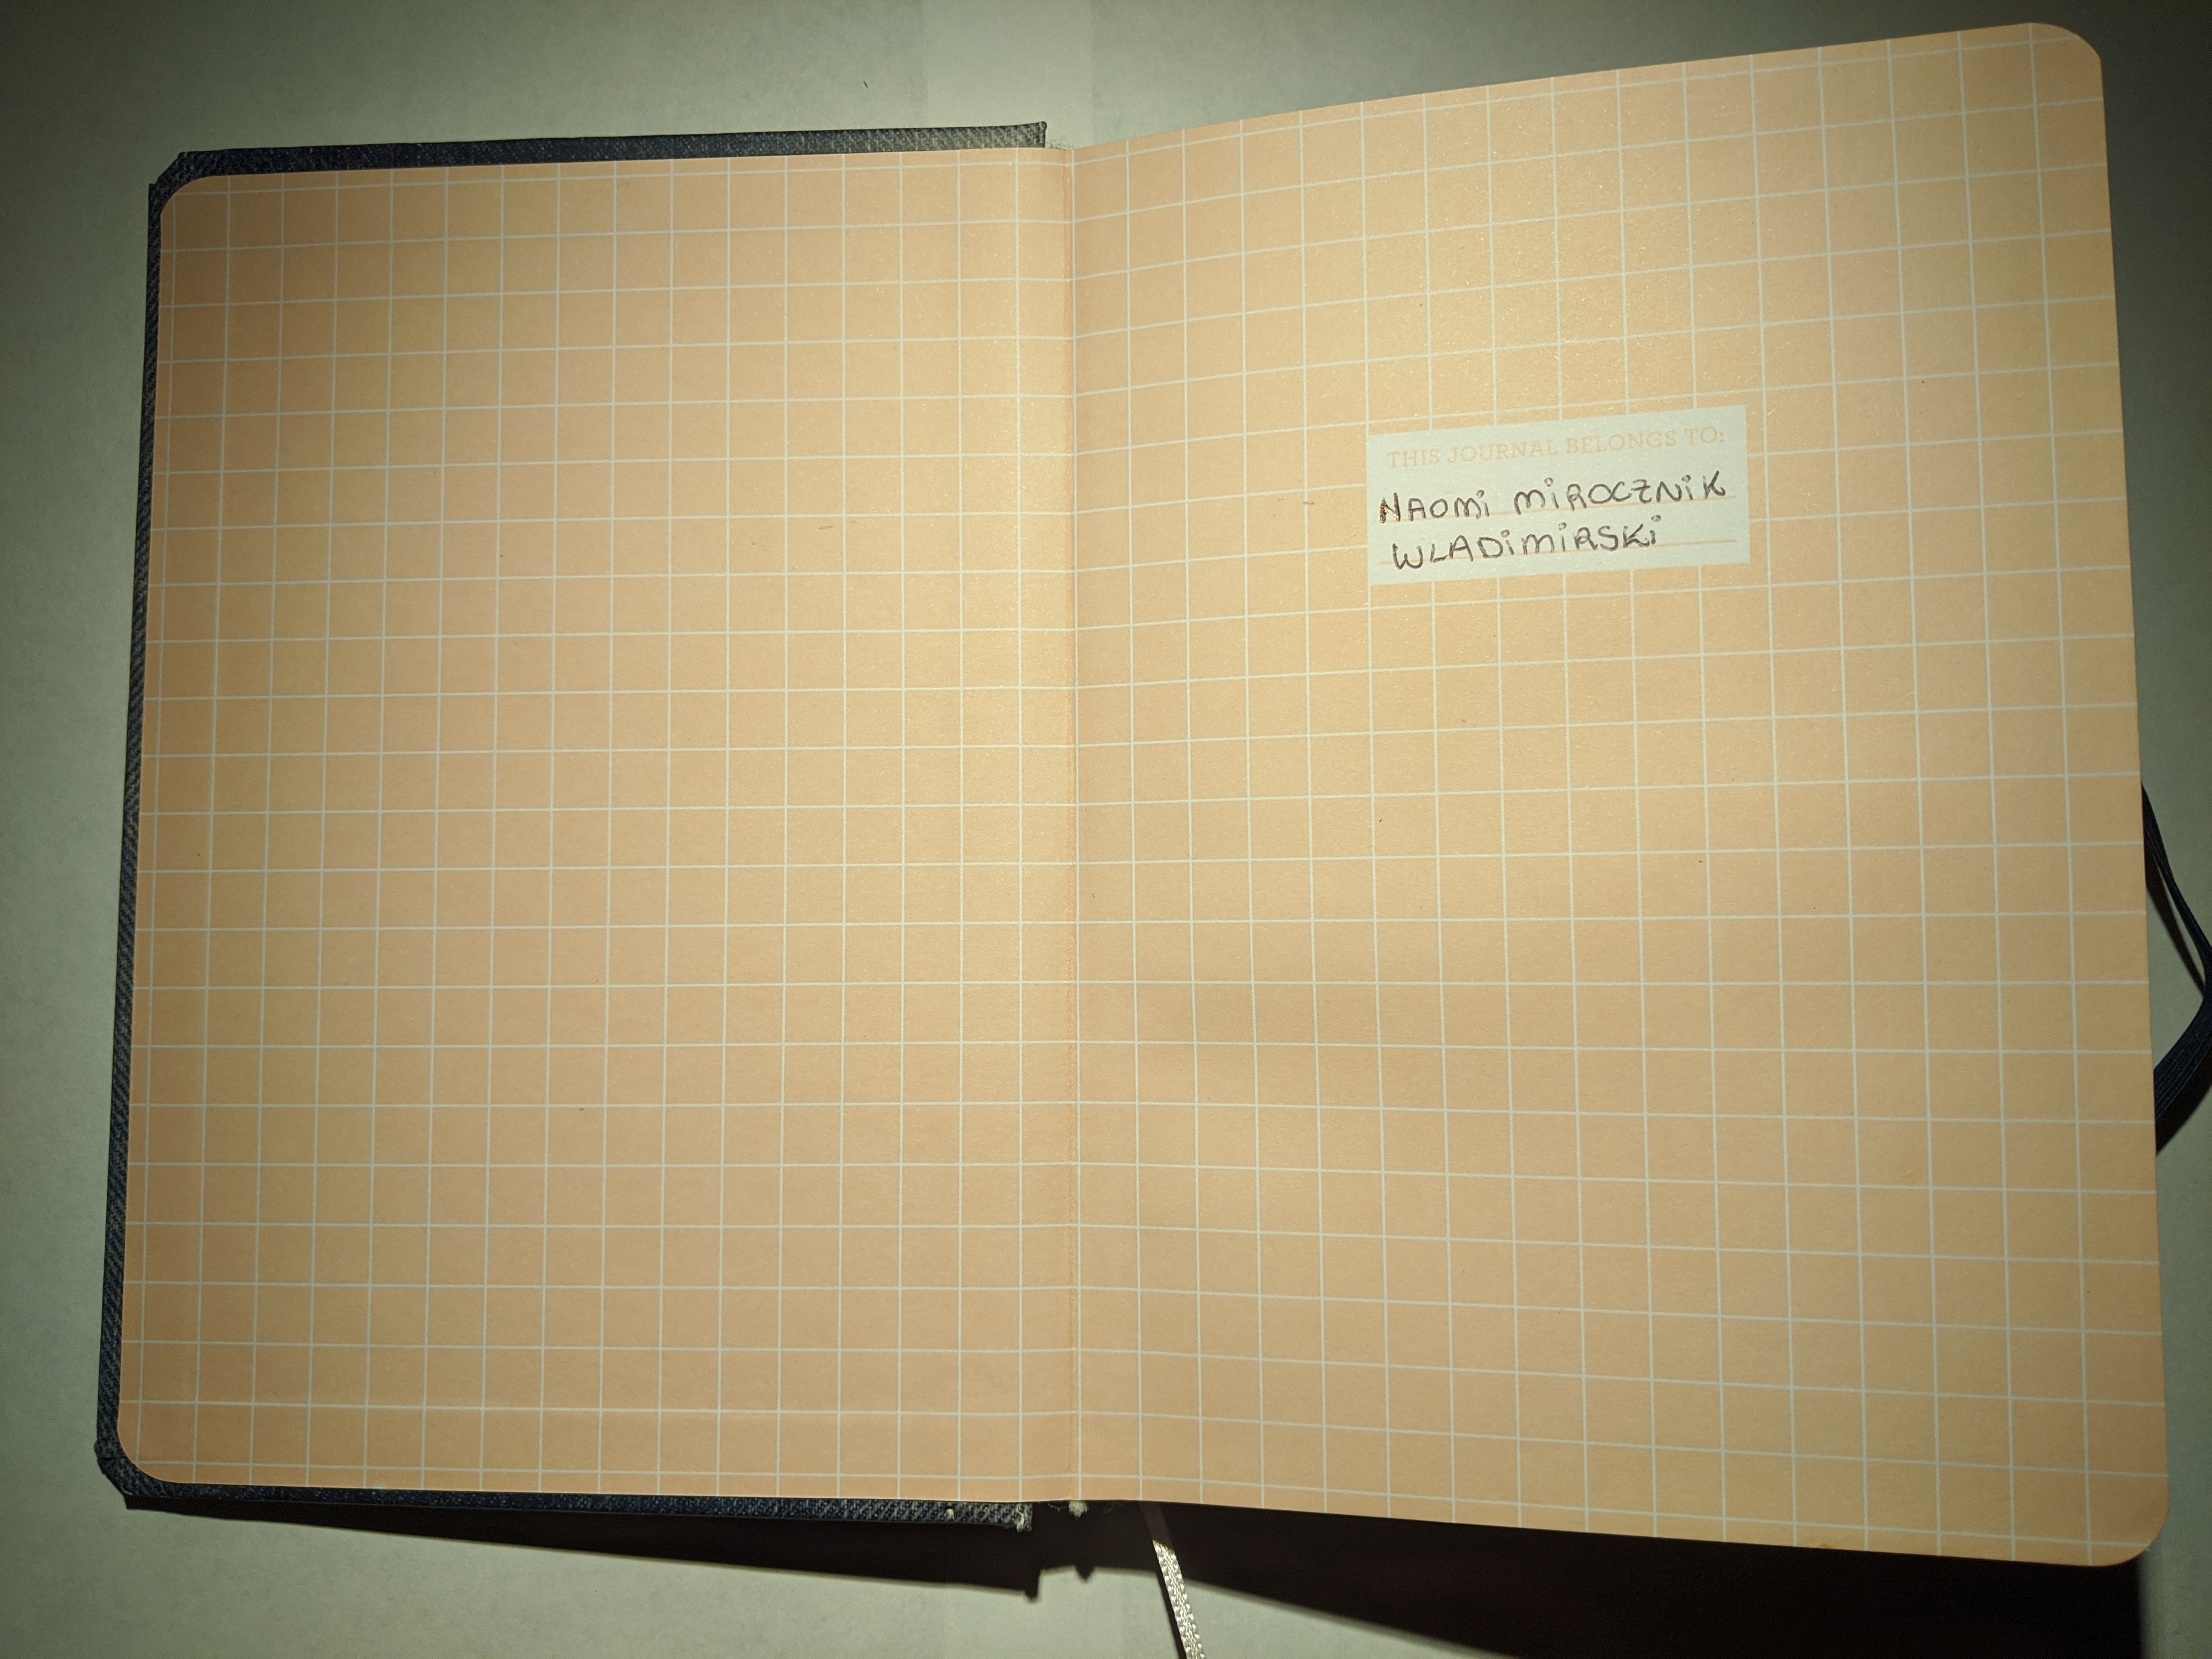 THIS JOURNAL BELONGS TO:
NAOMi MiROCZNiK
WLADiMiRSKi